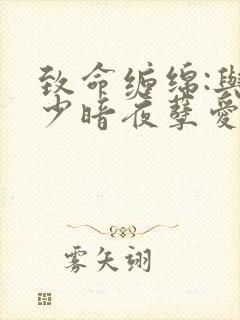 致命缠绵:与
少暗夜孽爱
雾矢翊